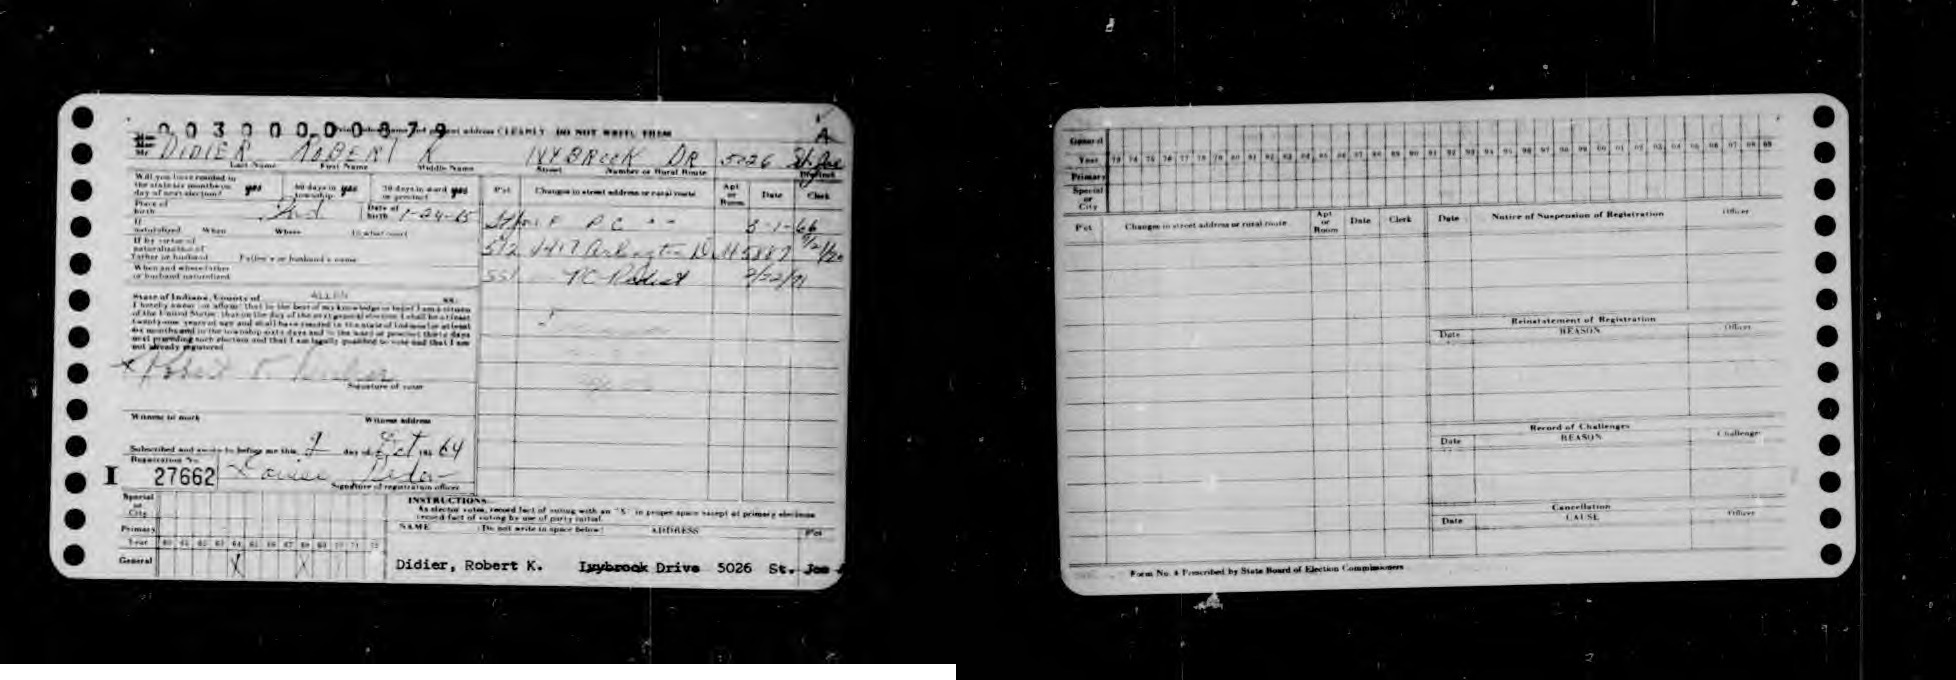 00300000879
address CLEARLY DO NOT WRITE THEM
A
Mr. DIDIER ROBERT K IVYBROOK DR 5026 St. Joe
Last Name First Name Middle Name Street Number or Rural Route Precinct
Will you have resided in
the state six months on
day of next election? yes 60 days in township yes 30 days in ward or precinct yes
Pct Changes in street address or rural route Apt or Room Date Clerk
Place of birth Ind Date of birth 1-24-25
P C 3-1-66
If naturalized When Where In what court
If by virtue of
naturalization of
Father or husband Father's or husband's name
512 4417 Arlington
When and where father
or husband naturalized
551 PC Redist 2/22/71
State of Indiana, County of ALLEN SS:
I hereby swear (or affirm) that to the best of my knowledge or belief I am a citizen
of the United States; that on the day of the next general election, I shall be at least
twenty-one years of age and shall have resided in the state of Indiana for at least
six months and in the township sixty days and in the ward or precinct thirty days
next preceding such election and that I am legally qualified to vote and that I am
not already registered.
x Robert K. Didier
Signature of voter
Witness to mark Witness address
Subscribed and sworn to before me this 2 day of Oct 19 64
Registration No.
I 27662 Louise
Signature of registration officer
Special
or
City
Primary
Year 60 61 62 63 64 65 66 67 68 69 70 71 72
General X X
INSTRUCTIONS
As elector votes, record fact of voting with an "X" in proper space except at primary elections
record fact of voting by use of party initial.
NAME (Do not write in space below) ADDRESS Pct
Didier, Robert K. Ivybrook Drive 5026 St. Joe
General
Year 73 74 75 76 77 78 79 80 81 82 83 84 85 86 87 88 89 90 91 92 93 94 95 96 97 98 99 00 01 02 03 04 05 06 07 08 09
Primary
Special
or
City
Pct Changes in street address or rural route Apt or Room Date Clerk
Date Notice of Suspension of Registration Officer
Reinstatement of Registration
Date REASON Officer
Record of Challenges
Date REASON Challenger
Cancellation
Date CAUSE Officer
Form No. 4 Prescribed by State Board of Election Commissioners